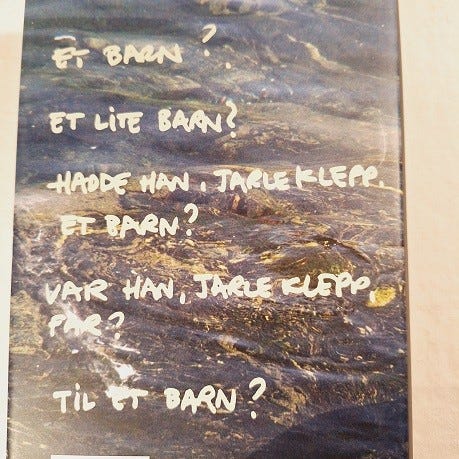 ET BARN?
ET LITE BARN?
HADDE HAN, JARLE KLEPP,
ET BARN?
VAR HAN, JARLE KLEPP,
FAR?
TIL ET BARN?